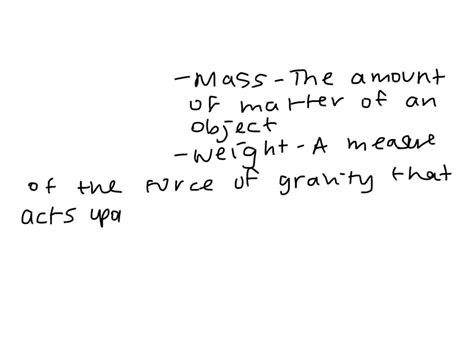 - Mass - The amount
of matter of an
object
- Weight - A measure
of the force of gravity that
acts upo